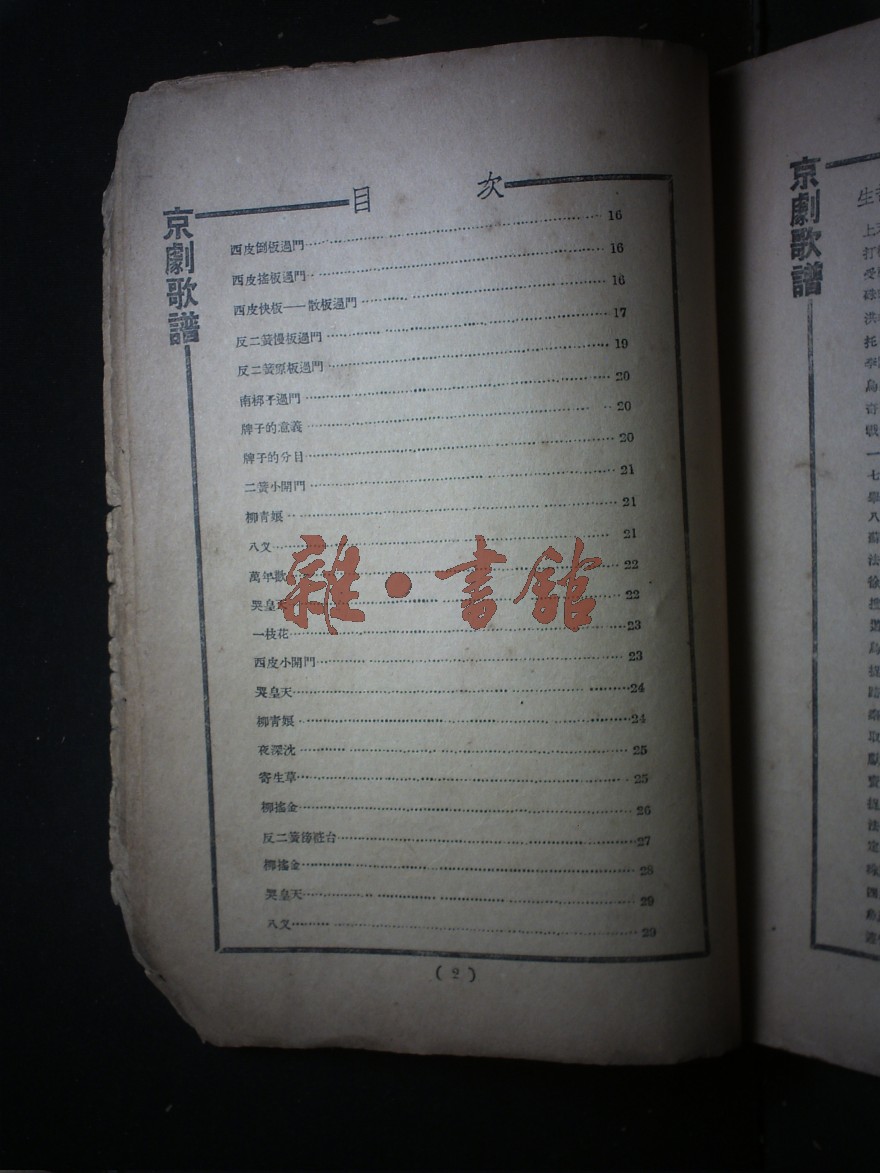 京劇歌譜
目次
西皮倒板過門 16
西皮搖板過門 16
西皮快板——散板過門 16
反二簧慢板過門 17
反二簧原板過門 19
南梆子過門 20
牌子的意義 20
牌子的分目 20
二簧小開門 21
柳青娘 21
八叉 21
萬年歡 22
哭皇天 22
一枝花 23
西皮小開門 23
哭皇天 24
柳青娘 24
夜深沈 25
寄生草 25
柳搖金 26
反二簧 台 27
柳搖金 28
哭皇天 29
八叉 29
(2)
雜·書館
京劇歌譜
生
上
打
受
洪
托
李
烏
寄
戰
一
七
八
法
徐
烏
捉
取
賣
捉
法
定
四